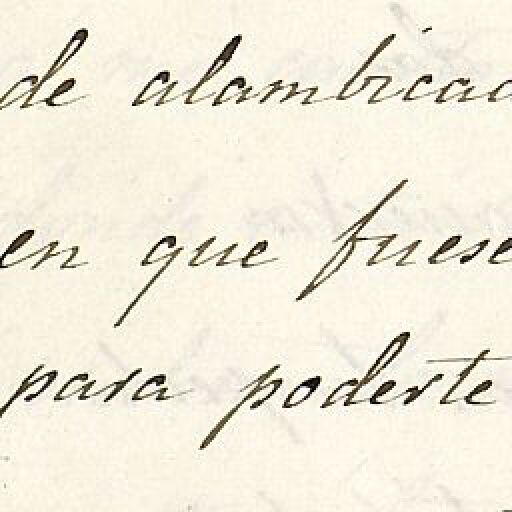 de alambicad
en que fuese
para poderte